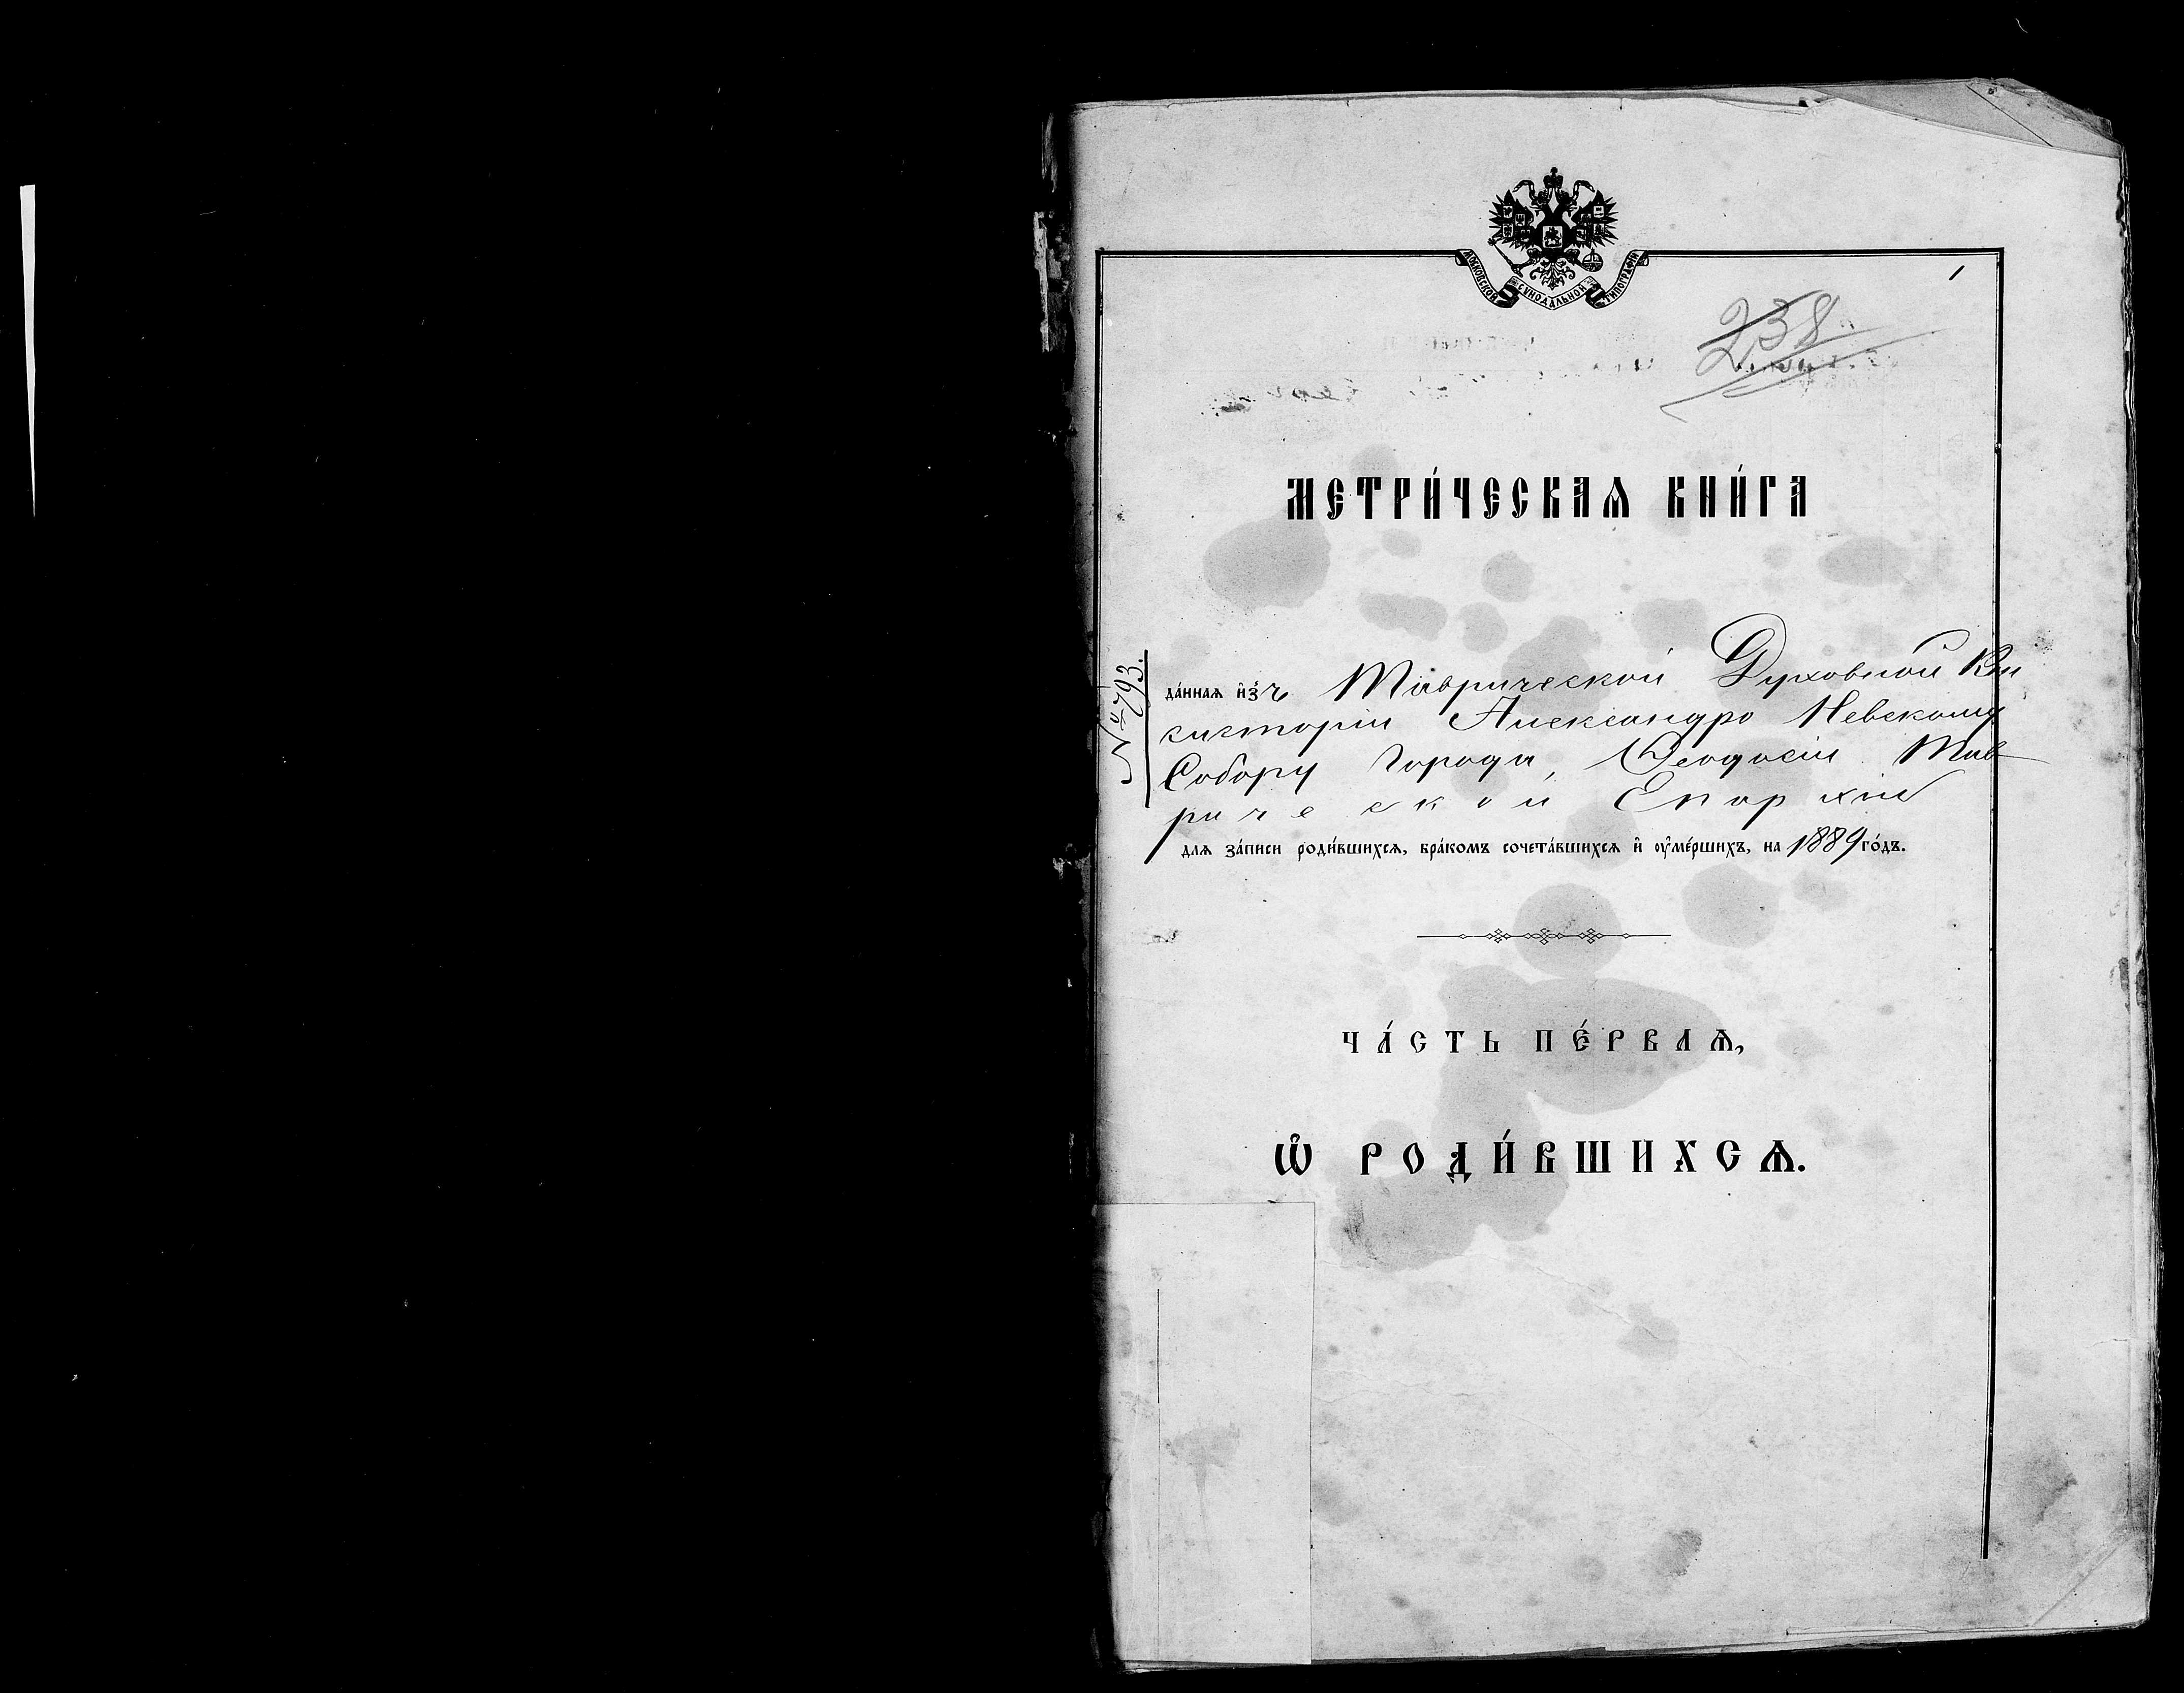 МОСКОВСКОЙ СѴНОДАЛЬНОЙ ТИПОГРАФІИ
1
238
МЕТРИ́ЧЕСКАѦ КНИ́ГА
№ 793.
да́ннаѧ и҆зъ Таврической Духовной Кон
систоріи Александро Невскому
Собору города Ѳеодосіи Тав
рической Епархіи
для за́писи роди́вшихсѧ, бра́комъ сочета́вшихсѧ и҆ ᲂу҆ме́ршихъ, на 1889 го́дъ.
ЧА́СТЬ ПЕ́РВАѦ,
Ѡ҆ РОДИ́ВШИХСѦ.